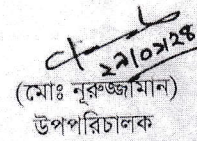 ২৯/০২/২৪
(মোঃ নূরুজ্জামান)
উপপরিচালক